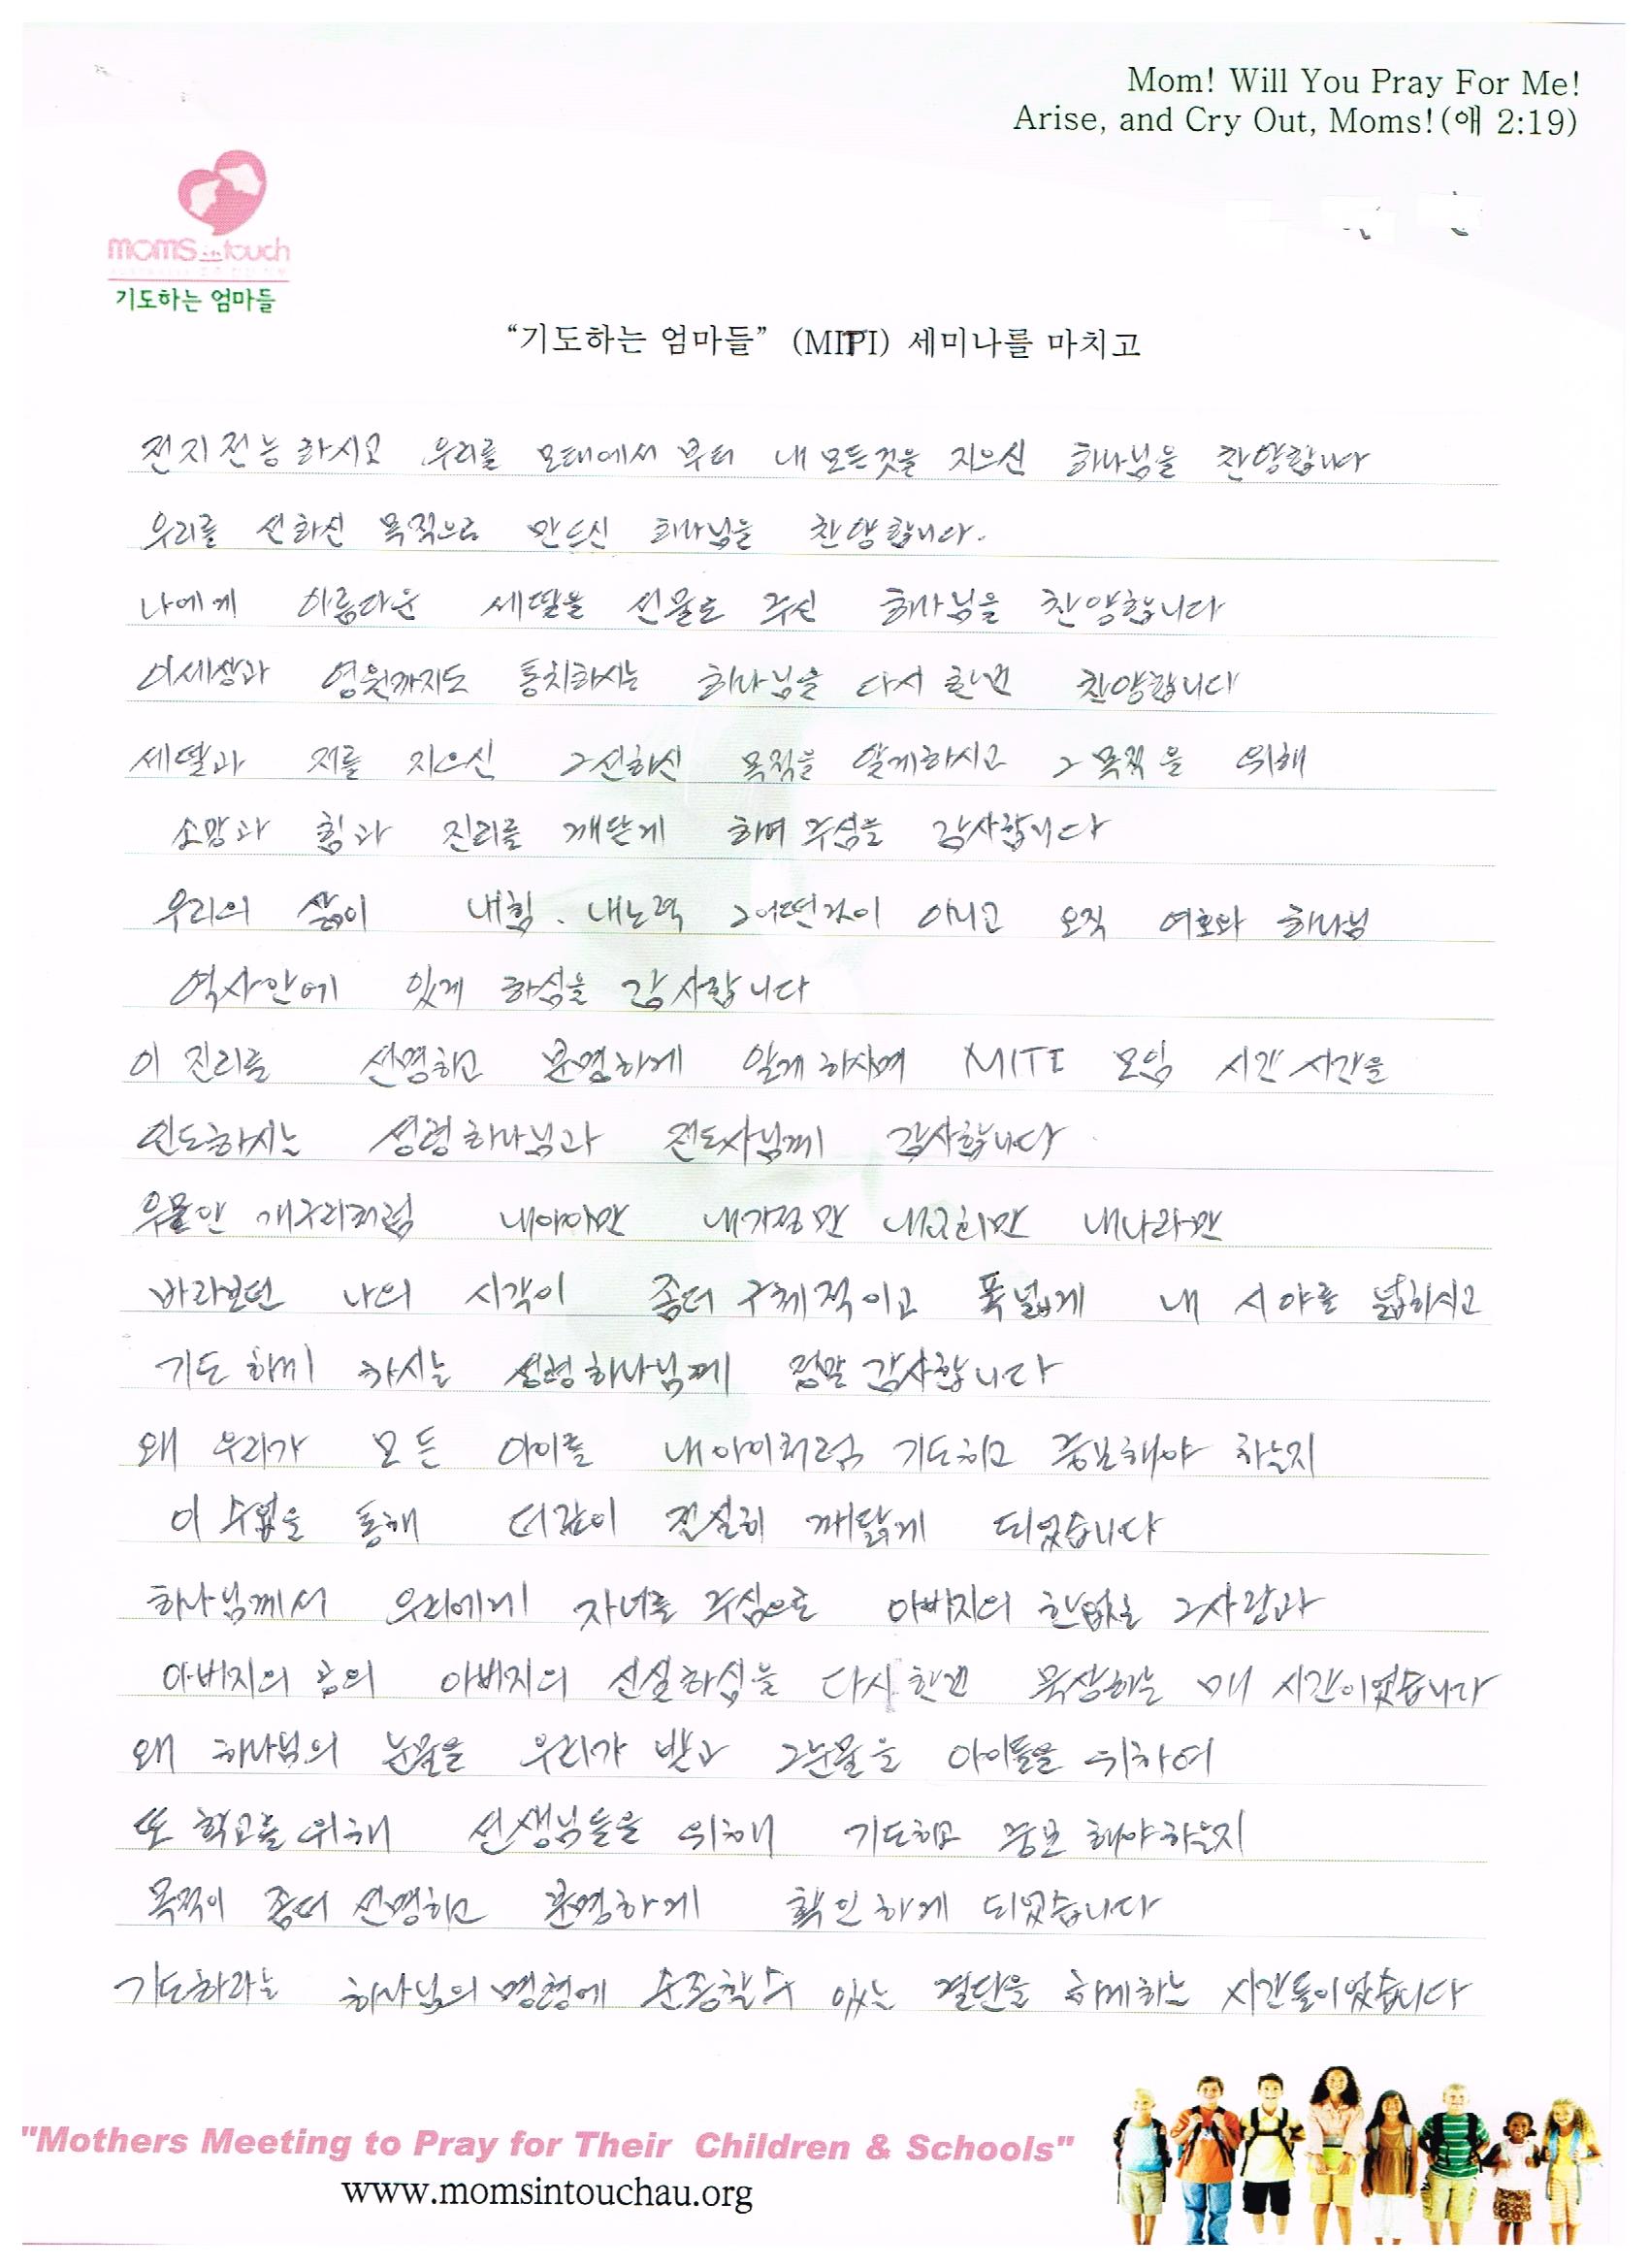 Mom! Will You Pray For Me!
Arise, and Cry Out, Moms!(애 2:19)
moms in touch
기도하는 엄마들
“기도하는 엄마들” (MITI) 세미나를 마치고
전지전능하시고 우리를 모태에서 부터 내 모든것을 지으신 하나님을 찬양합니다
우리를 선하신 목적으로 만드신 하나님을 찬양합니다.
나에게 아름다운 세딸을 선물로 주신 하나님을 찬양합니다
이세상과 영원까지도 통치하시는 하나님을 다시 한번 찬양합니다
세딸과 저를 지으신 그선하신 목적을 알게하시고 그 목적을 위해
소망과 힘과 진리를 깨닫게 하여 주심을 감사합니다
우리의 삶이 내힘. 내노력 그어떤것이 아니고 오직 여호와 하나님
역사안에 있게 하심을 감사합니다
이 진리를 선명하고 분명하게 알게 하시며 MITI 모임 시간 시간을
인도하시는 성령하나님과 전도사님께 감사합니다
우물안 개구리처럼 내아이만 내가정만 내교회만 내나라만
바라보던 나의 시각이 좀더 구체적이고 폭넓게 내 시야를 넓히시고
기도 하게 하시는 성령하나님께 정말 감사합니다
왜 우리가 모든 아이를 내아이처럼 기도하고 중보해야 하는지
이 수업을 통해 더같이 진실히 깨닫게 되었습니다
하나님께서 우리에게 자녀를 주심으로 아버지의 한없는 그사랑과
아버지의 공의 아버지의 신실하심을 다시한번 묵상하는 매 시간이었습니다
왜 하나님의 눈물을 우리가 받고 그눈물을 아이들을 위하여
또 학교를 위해 선생님들을 위해 기도하고 중보 해야하는지
목적이 좀더 선명하고 분명하게 확인하게 되었습니다
기도하라는 하나님의 명령에 순종할수 있는 결단을 하게하는 시간들이었습니다
"Mothers Meeting to Pray for Their Children & Schools"
www.momsintouchau.org